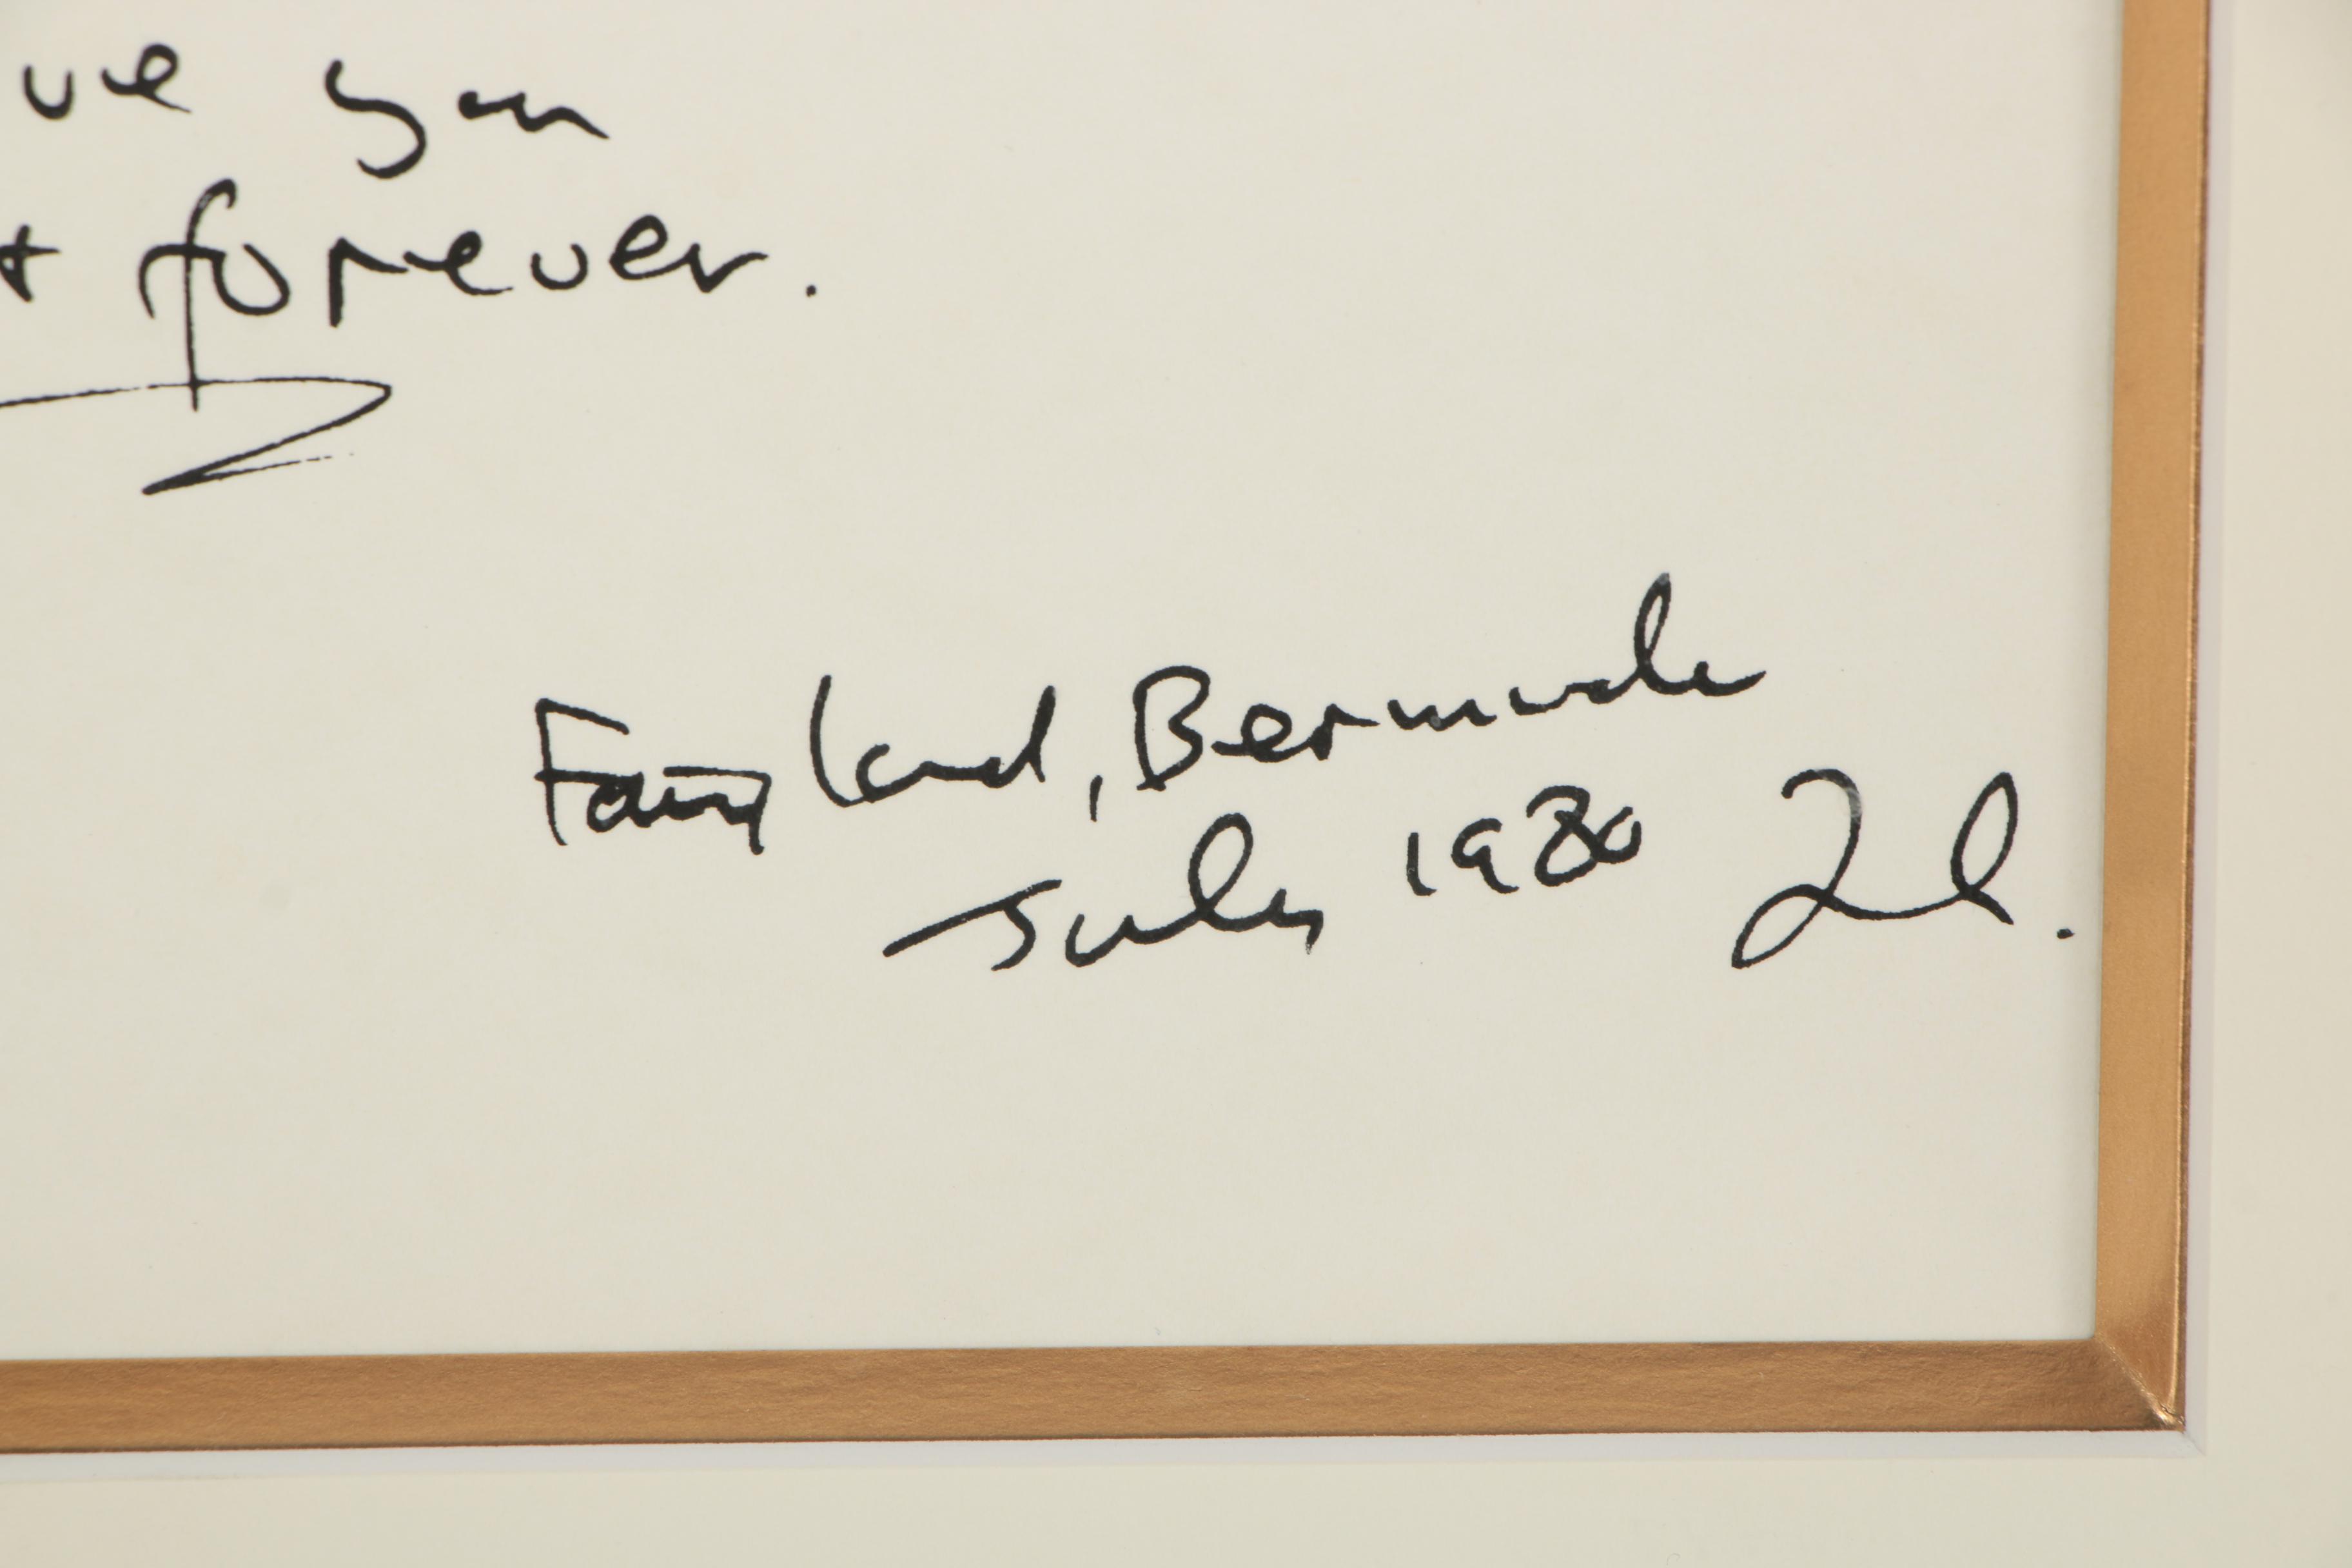 ve you
forever.
Fairyland, Bermuda
July 1980 JL.